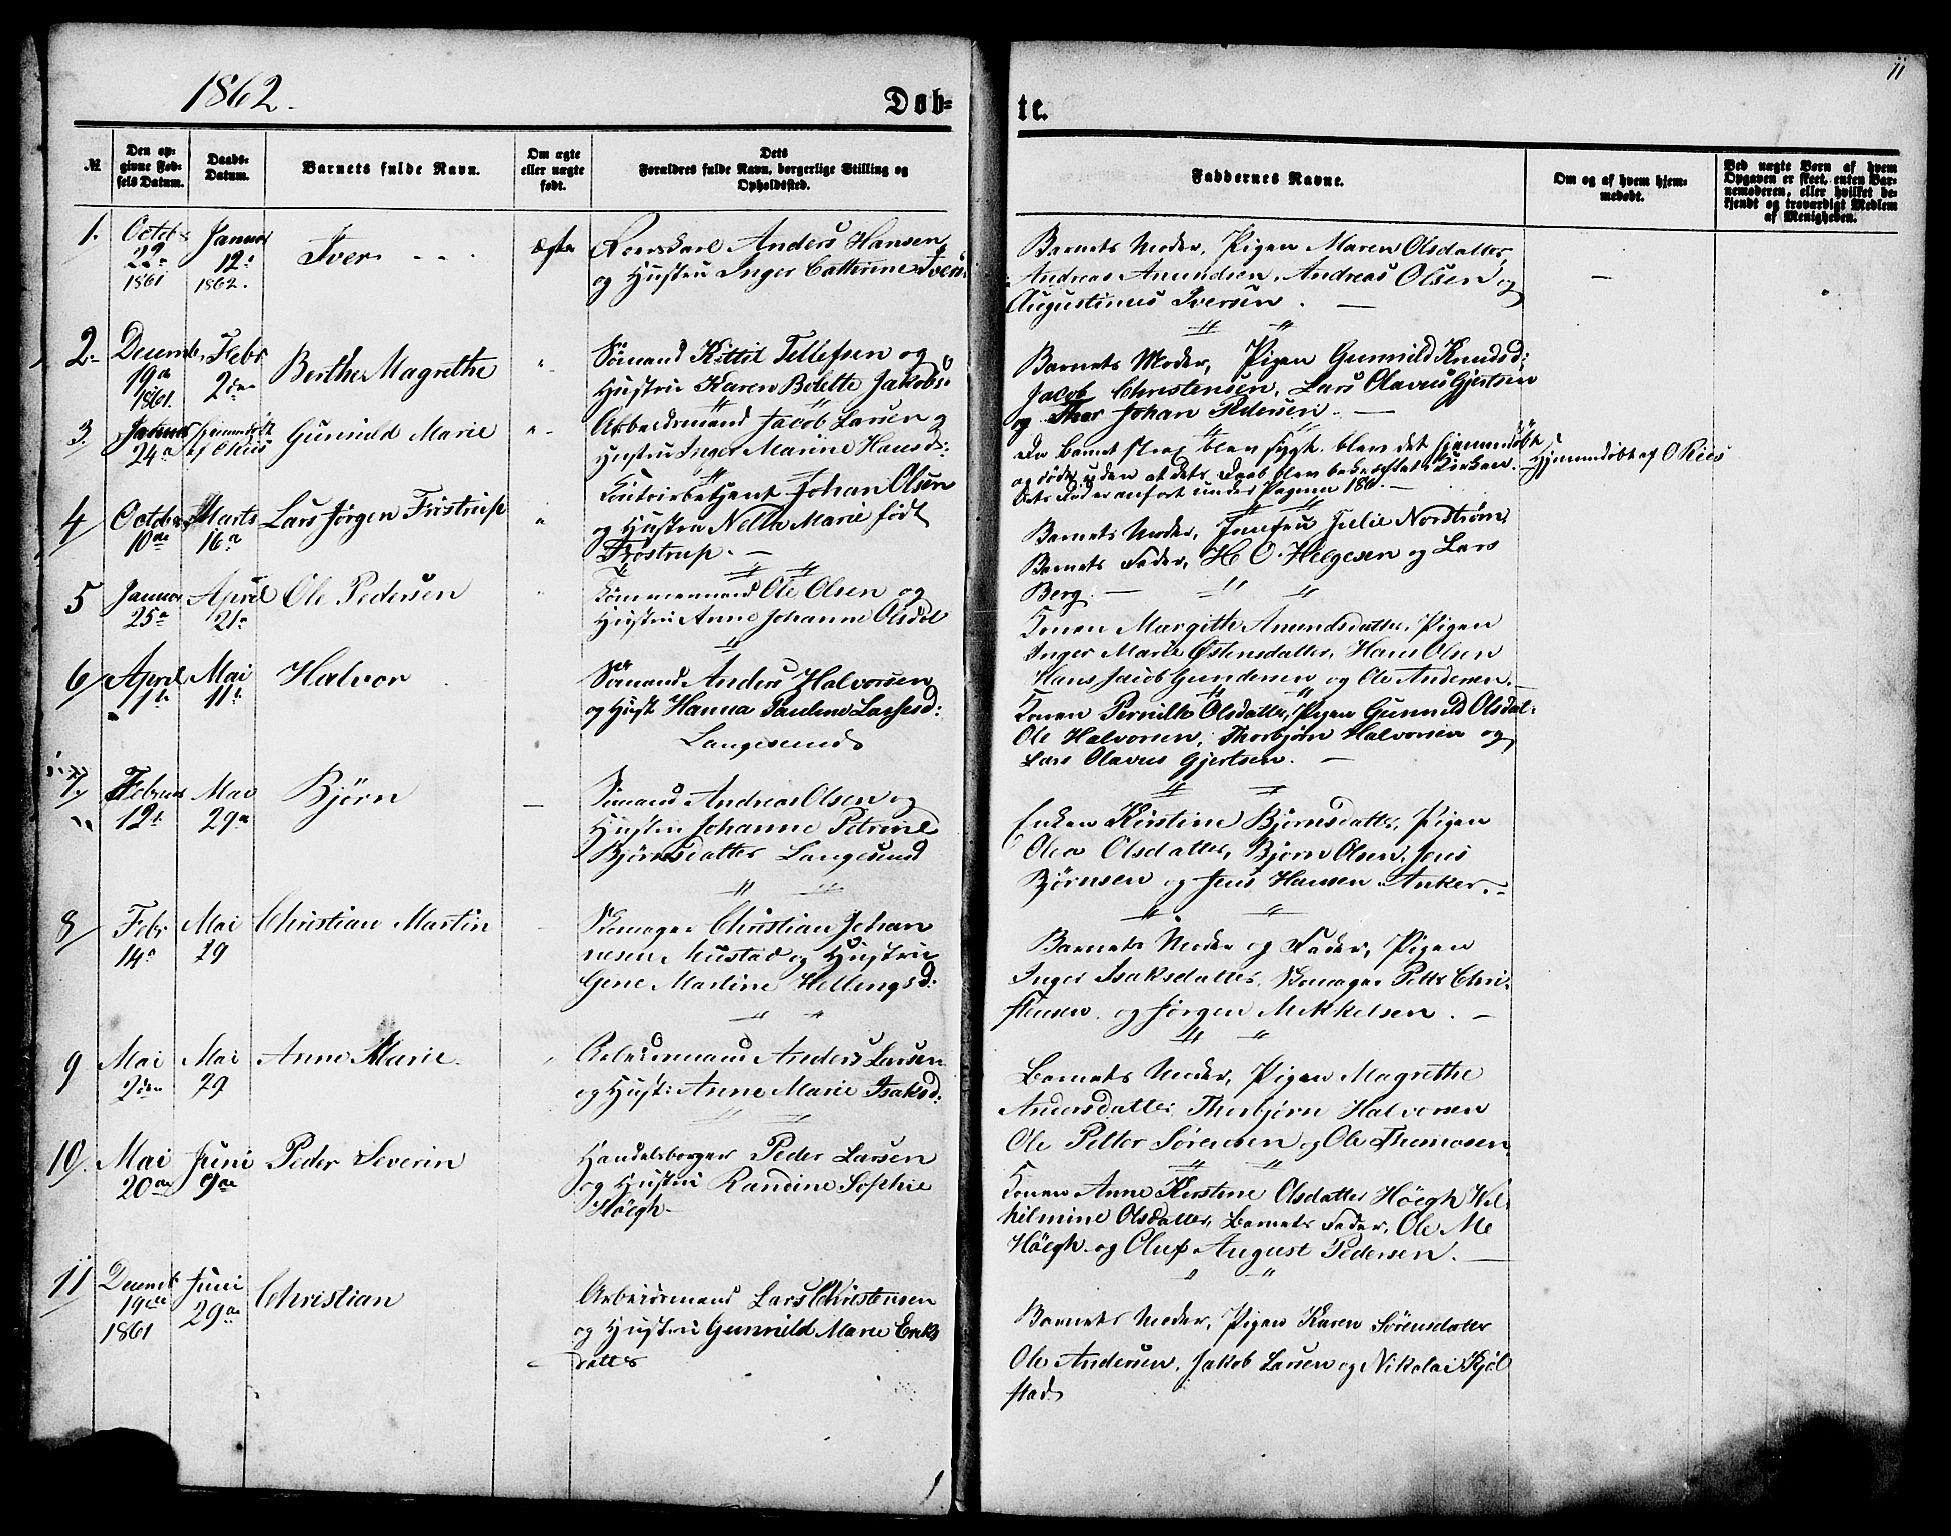 1862.
Døb=
te.
11
№
Den op=
givne Fød=
sels Datum.
Daabs=
Datum.
Barnets fulde Navn.
Om ægte
eller uægte
født.
Dets
Forældres fulde Navn, borgerlige Stilling og
Opholdssted.
Faddernes Navne.
Om og af hvem hjem=
medøbt.
Ved uægte Børn af hvem
Opgaven er skeet, enten Bar=
nemoderen, eller hvilket be=
kjendt og troværdigt Medlem
af Menigheden.
1.
Octobr
22
1861
Januar
12
1862.
Iver
ægte
Anders Hansen
og Hustru Inger Cathrine Ivers:
Barnets Moder, Pigen Maren Olsdatter,
Andreas Amundsen, Andreas Olsen og
Augustinus Iversen.
2.
Decemb
19
1861.
Febr
2den
Berthe Magrethe
Sömand Kittil Tellefsen og
Hustru Karen Bolette Jakobs:
Barnets Moder, Pigen Gunnild Knudsd:
Jacob Christensen, Lars Olavus Gjertsen
og Thor Johan Pedersen.
3.
Januar
24
Gunnild Marie
Arbeidsmand Jacob Larsen og
Hustru Inger Marine Hansd:
Da Barnet strax blev sygt, blev det hjemmedöbt
og döde, uden at dets Daab blev bekræftet i Kirken.
Dets Död er anfört under Pagina 186.
Hjemmedöbt af O Riis
4
Octobr
10
Marts
16
Lars Jørgen Fristrup
Johan Olsen
og Hustru Marie født
Barnets Moder, Jomfru Julie Nordstrøm,
Barnets Fader, H O. Helgesen og Lars
Berg.
5
Januar
25
April
21
Ole Pedersen
Tömmermand Ole Olsen og
Hustru Anne Johanne Olsdat
Konen Margith Amundsdatter, Pigen
Inger Marie Østensdatter, Hans Olsen
Hans Jacob Gundersen og Ole Andersen.
6
April
1
Mai
11
Halvor
Sömand Anders Halvorsen
og Hust Hanna Pauline Larsesd:
Langesund
Konen Pernille Olsdatter, Pigen Gunnild Olsdat:
Ole Halvorsen, Thorbjørn Halvorsen og
Lars Olavus Gjertsen.
7.
Februar
12
Mai
29
Bjørn
Sömand Andreas Olsen og
Hustru Johanne Petrine
Bjørnsdatter Langesund
Enken Kirstine Bjørnsdatter, Pigen
Olea Olsdatter, Bjørn Olsen, Jens
Bjørnsen og Jens Hansen Anker.
8
Febr
14
Mai
29
Christian Martin
Skomager Christian Johan
nesen Mustad og Hustru
Gene Martine Hellingsd:
Barnets Moder og Fader, Pigen
Inger Isaksdatter, Skomager Petter Chri=
stensen, og Jørgen Mikkelsen.
9
Mai
2den
Mai
29
Anne Marie.
Arbeidsmand Anders Larsen
og Hust: Anne Marie Isaksd:
Barnets Moder, Pigen Magrethe
Andersdatter, Thorbjørn Halvorsen
Ole Petter Sørensen og Ole Thomasen
10.
Mai
20
Juni
9
Peder Severin
Handelsborger Peder Larsen
og Hustru Randine Sophie
Höegh
Konen Anne Kirstine Olsdatter Höegh Wil=
helmine Olsdatter, Barnets Fader, Ole M
Höegh og Oluf August Pedersen.
11
Decemb
19
1861
Juni
29
Christian
Arbeidsmand Lars Christensen
og Hustru Gunnild Marie Eriks
datter
Barnets Moder, Pigen Karen Sörensdatter
Ole Andersen, Jakob Larsen og Nikolai Kjöl
stad